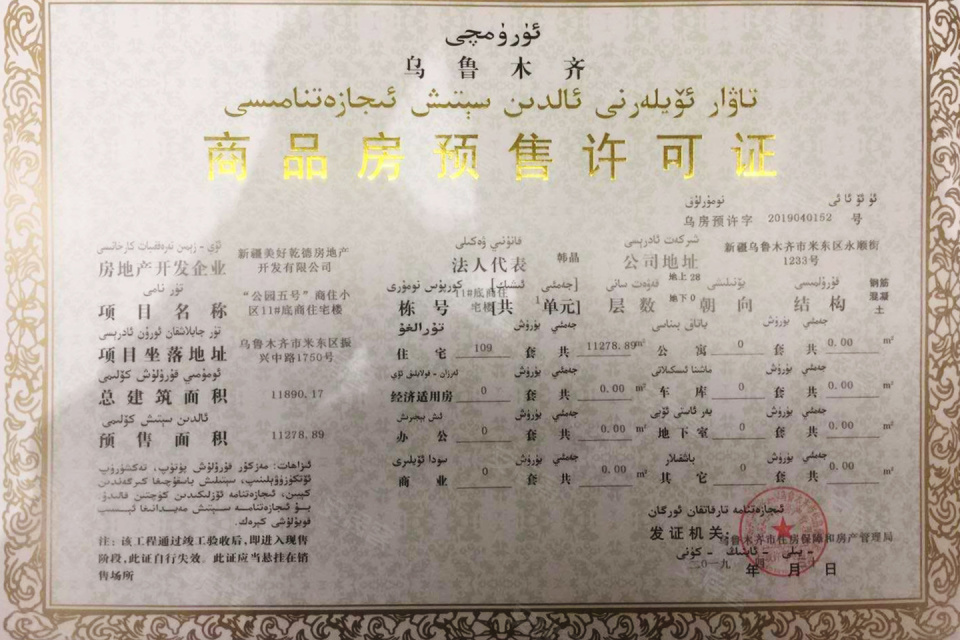 ئۈرۈمچى
乌鲁木齐
تاۋار ئۆيلەرنى ئالدىن سېتىش ئىجازەتنامىسى
商品房预售许可证
نومۇرلۇق
乌房预许字 2019040152 号
房地产开发企业 新疆美好乾德房地产开发有限公司
قانۇنىي ۋەكىلى
法人代表 韩晶
شىركەت ئادرېسى
公司地址 新疆乌鲁木齐市米东区永顺街1233号
تۈر نامى
项目名称 “公园五号”商住小区11#底商住宅楼
كورپۇس نومۇرى [جەمئىي ئىشىك]
栋号 11#底商住宅楼 [共 1 单元]
قەۋەت سانى
层数 地上 28 地下 0
يۆنىلىشى
朝向
قۇرۇلمىسى
结构 钢筋混凝土
项目坐落地址 乌鲁木齐市米东区振兴中路1750号
住宅 109 套 共 11278.89 m²
公寓 0 套 共 0.00 m²
ئومۇمىي قۇرۇلۇش كۆلىمى
总建筑面积 11890.17
经济适用房 0 套 共 0.00 m²
车库 0 套 共 0.00 m²
ئالدىن سېتىش كۆلىمى
预售面积 11278.89
办公 0 套 共 0.00 m²
地下室 0 套 共 0.00 m²
商业 0 套 共 0.00 m²
其它 0 套 共 0.00 m²
注：该工程通过竣工验收后，即进入现售
阶段，此证自行失效。此证应当悬挂在销
售场所
ئىجازەتنامە تارقاتقان ئورگان
发证机关： 乌鲁木齐市住房保障和房产管理局
- يىلى - ئاينىڭ - كۈنى
二〇一九 年 四 月 日